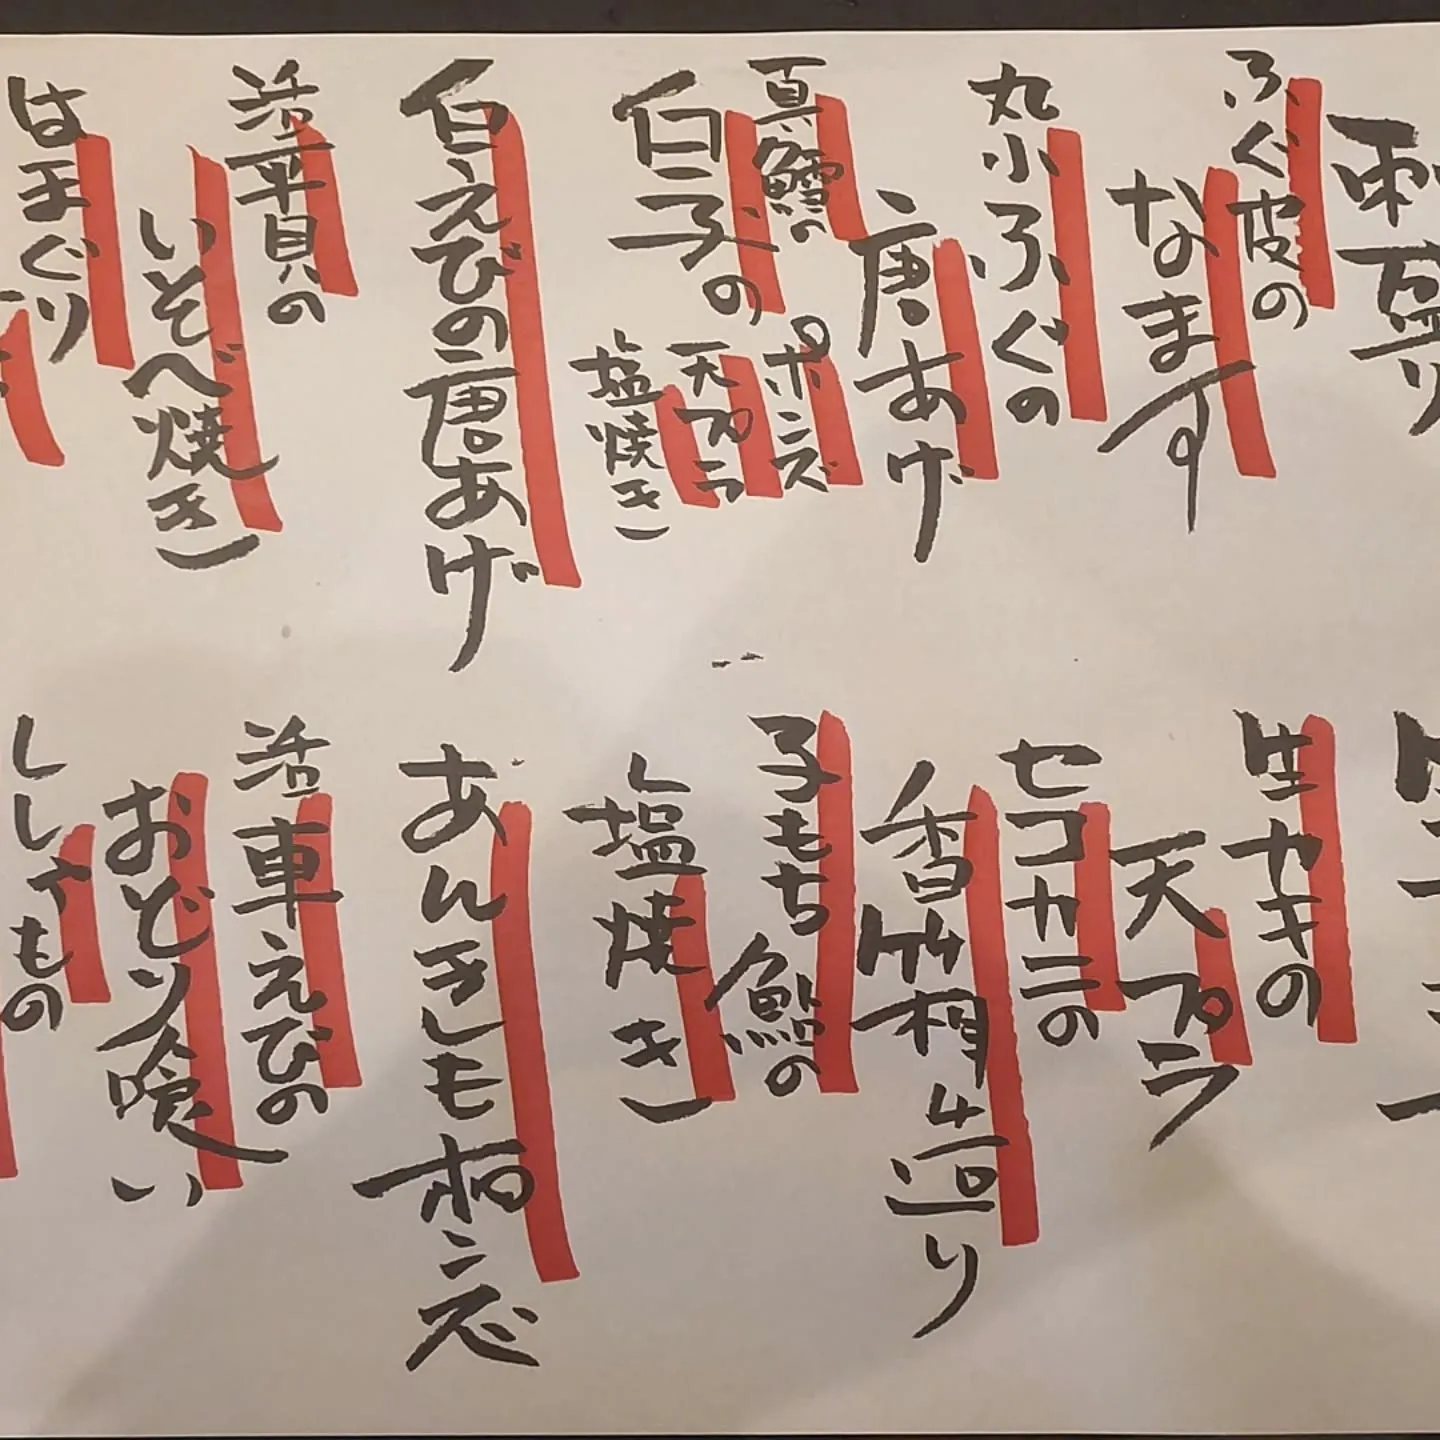 刺盛り
ふぐ皮の
なます
丸小ふぐの
唐あげ
真鱈の
白子の
ポンズ
天プラ
塩焼き
白えびの唐あげ
活平貝の
いそべ焼き
はまぐり
生カキの
天プラ
セコカニの
香箱造り
子もち鮎の
塩焼き
あんきもポンズ
活車えびの
おどり喰い
ししゃもの